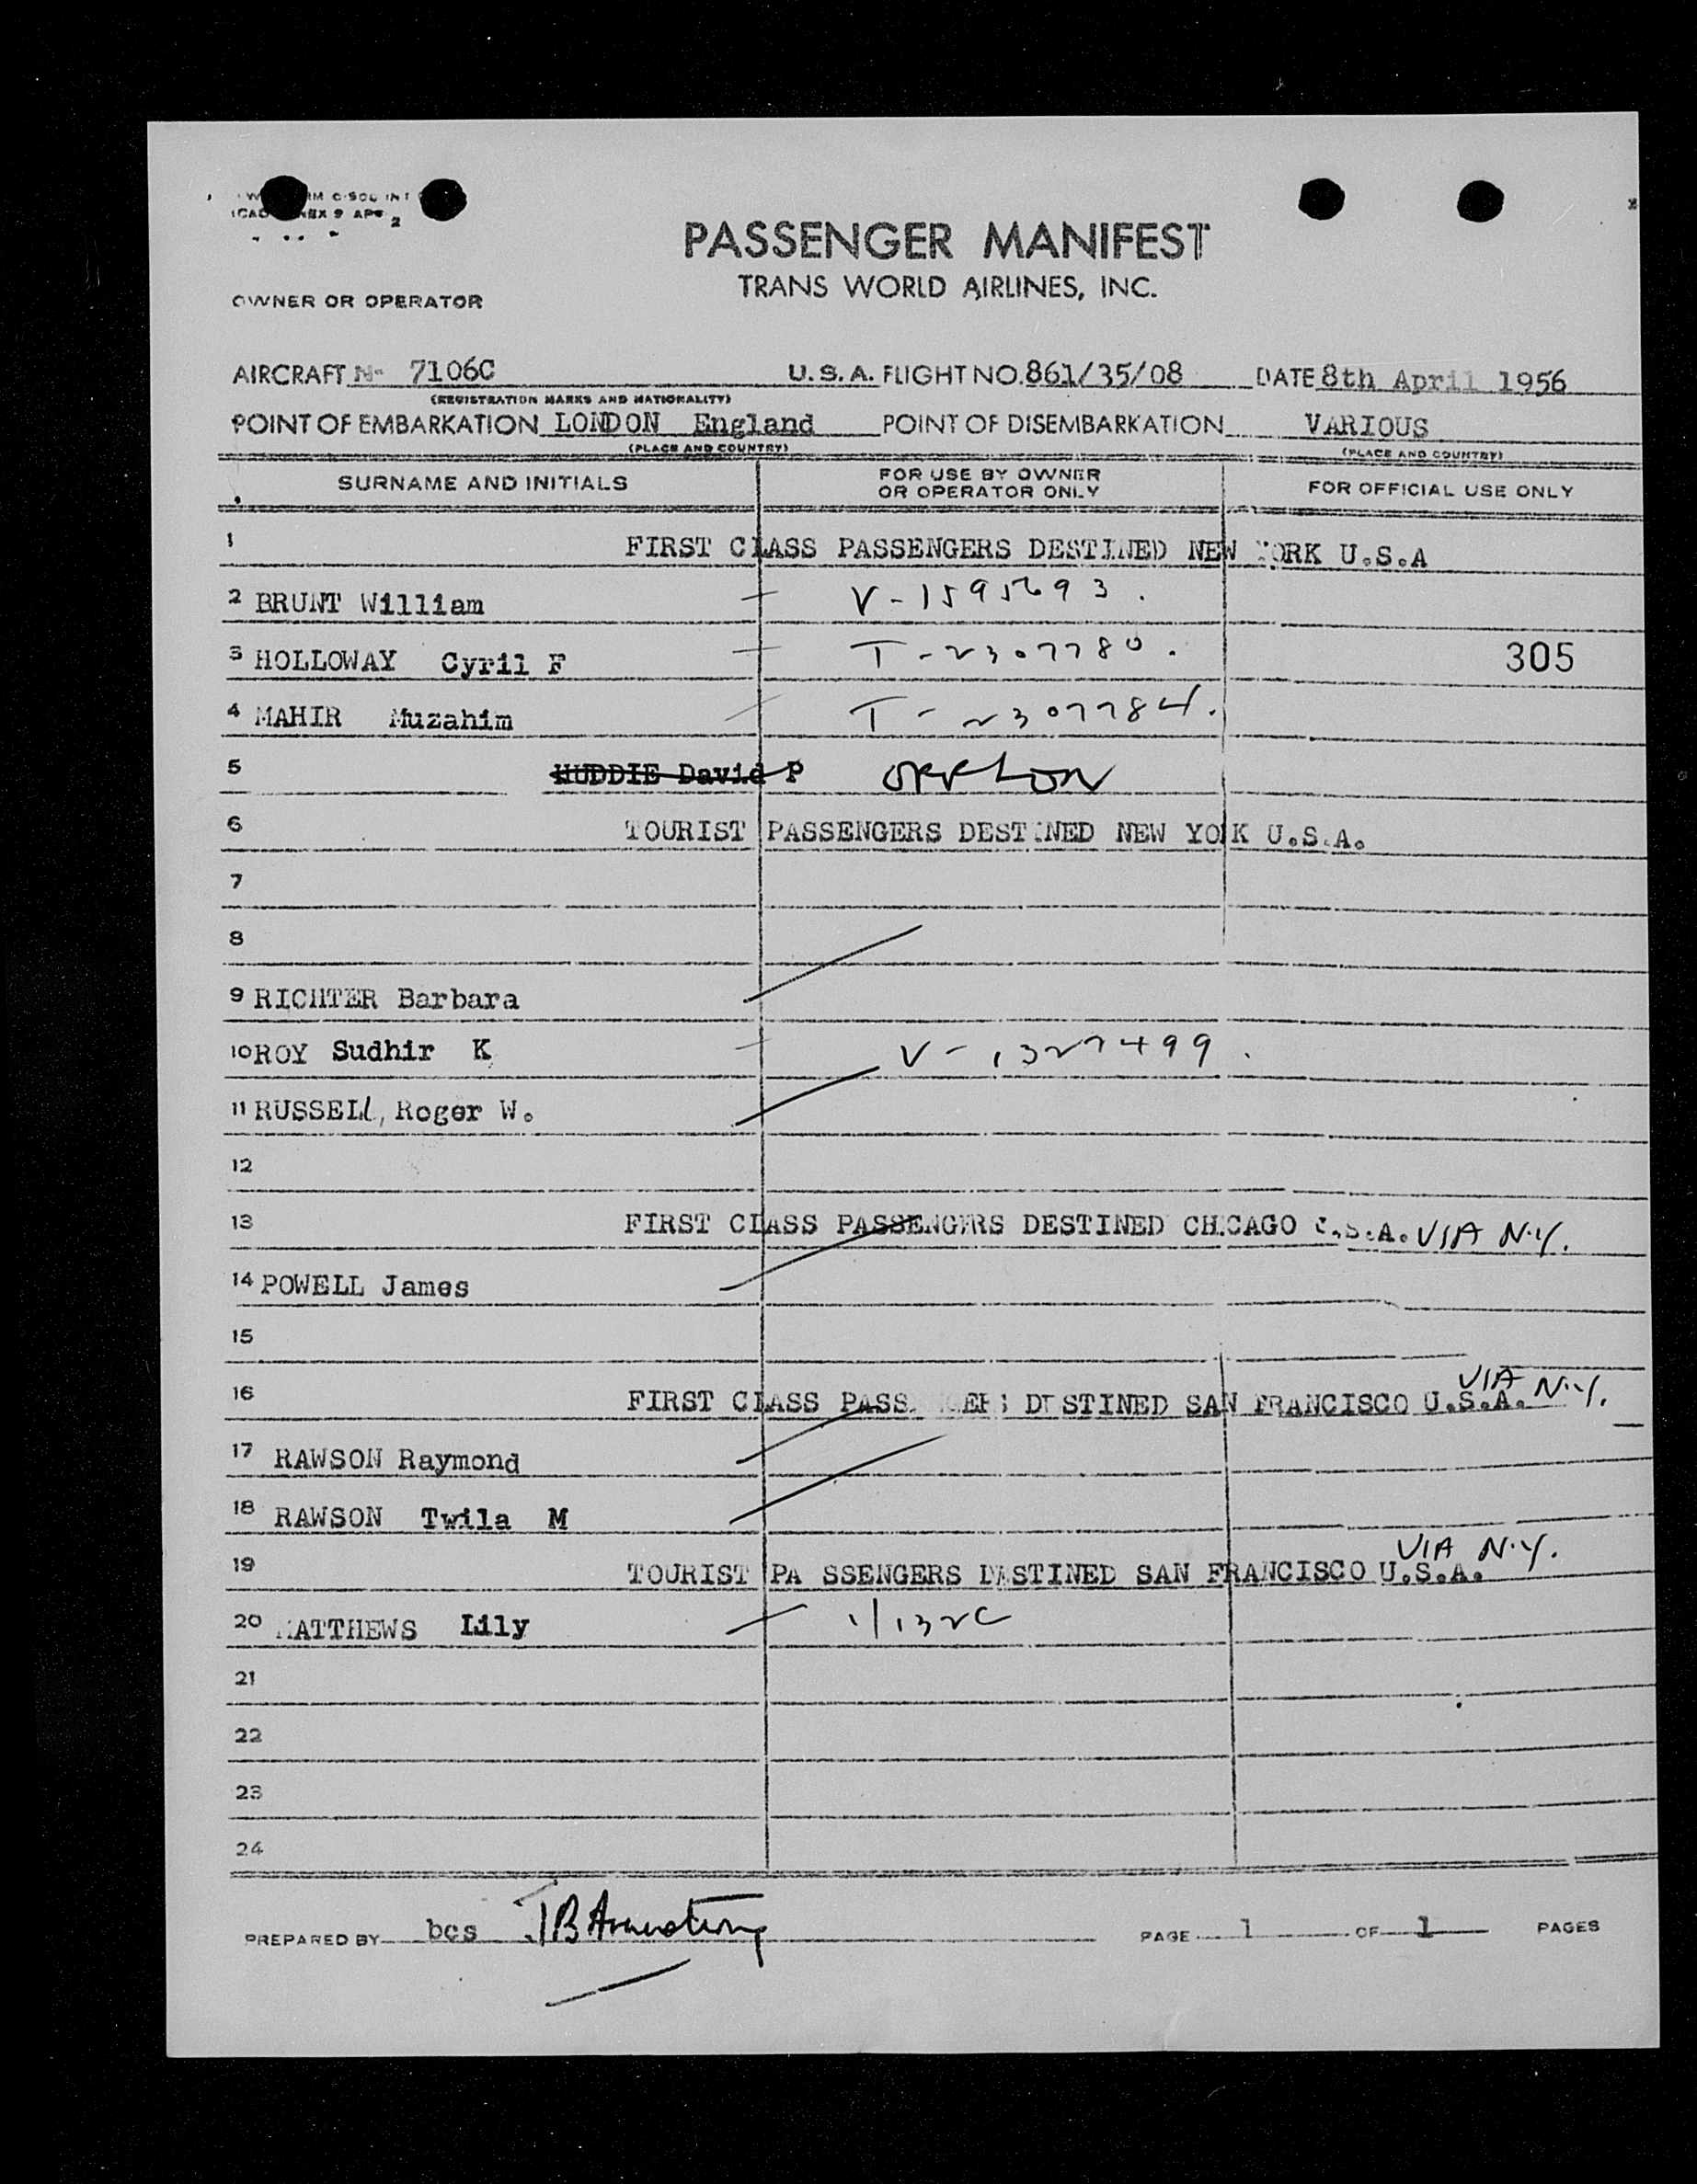 PASSENGER MANIFEST
TRANS WORLD AIRLINES, INC.
OWNER OR OPERATOR
AIRCRAFT N- 7106C U.S.A. FLIGHT NO. 861/35/08 DATE 8th April 1956
(REGISTRATION MARKS AND NATIONALITY)
POINT OF EMBARKATION LONDON England POINT OF DISEMBARKATION VARIOUS
(PLACE AND COUNTRY) (PLACE AND COUNTRY)
SURNAME AND INITIALS FOR USE BY OWNER OR OPERATOR ONLY FOR OFFICIAL USE ONLY
1 FIRST CLASS PASSENGERS DESTINED NEW YORK U.S.A
2 BRUNT William V-1595693.
3 HOLLOWAY Cyril F T-2307780. 305
4 MAHIR Muzahim T-2307784.
5 HUDDIE David P
6 TOURIST PASSENGERS DESTINED NEW YORK U.S.A.
7
8
9 RICHTER Barbara
10 ROY Sudhir K V-1327499.
11 RUSSELL, Roger W.
12
13 FIRST CLASS PASSENGERS DESTINED CHICAGO U.S.A. VIA N.Y.
14 POWELL James
15
16 FIRST CLASS PASSENGERS DESTINED SAN FRANCISCO U.S.A. VIA N.Y.
17 RAWSON Raymond
18 RAWSON Twila M
19 TOURIST PA SSENGERS DESTINED SAN FRANCISCO U.S.A. VIA N.Y.
20 MATTHEWS Lily 1/132C
21
22
23
24
PREPARED BY bcs JB Armstrong PAGE 1 OF 1 PAGES